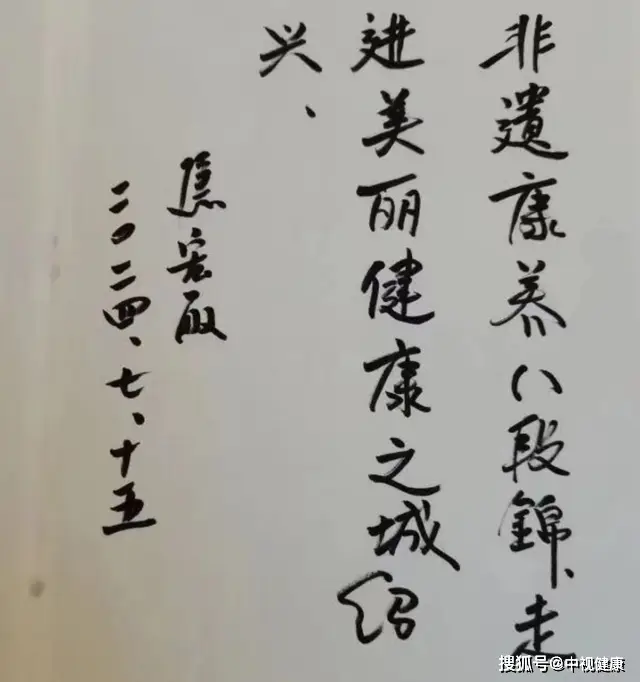 非遺康养八段錦、走
進美丽健康之城绍
兴、
二〇二四、七、十五
搜狐号@中视健康